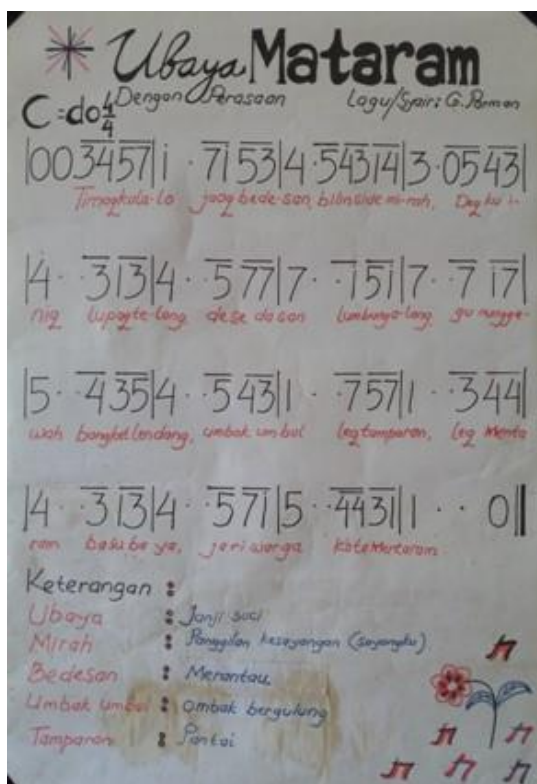 Ubaya Mataram
C = do 4/4 Dengan Perasaan Lagu/Syair: G. Parman
|00 3457|i · 71 53|4 · 54314|3 · 0543|
jaog bede-san, Deg ku i-
|4 · · 313|4 · · 577|7 · · 151|7 · · 7 17|
niq lupaq te-lang dese dasan
|5 · · 435|4 · · 543|1 · · 757|1 · · 344|
wah bangket lendang, umbak umbul leq tamparan, leq Menta
|4 · · 313|4 · · 571|5 · · 4431|1 · · 0||
ram basu ba ya, jari warga kote Mentaram
Keterangan :
Ubaya : Janji suci
Mirah : Panggilan kesayangan (sayangku)
Bedesan : Merantau
Umbak umbul : ombak bergulung
Tamparan : Pantai